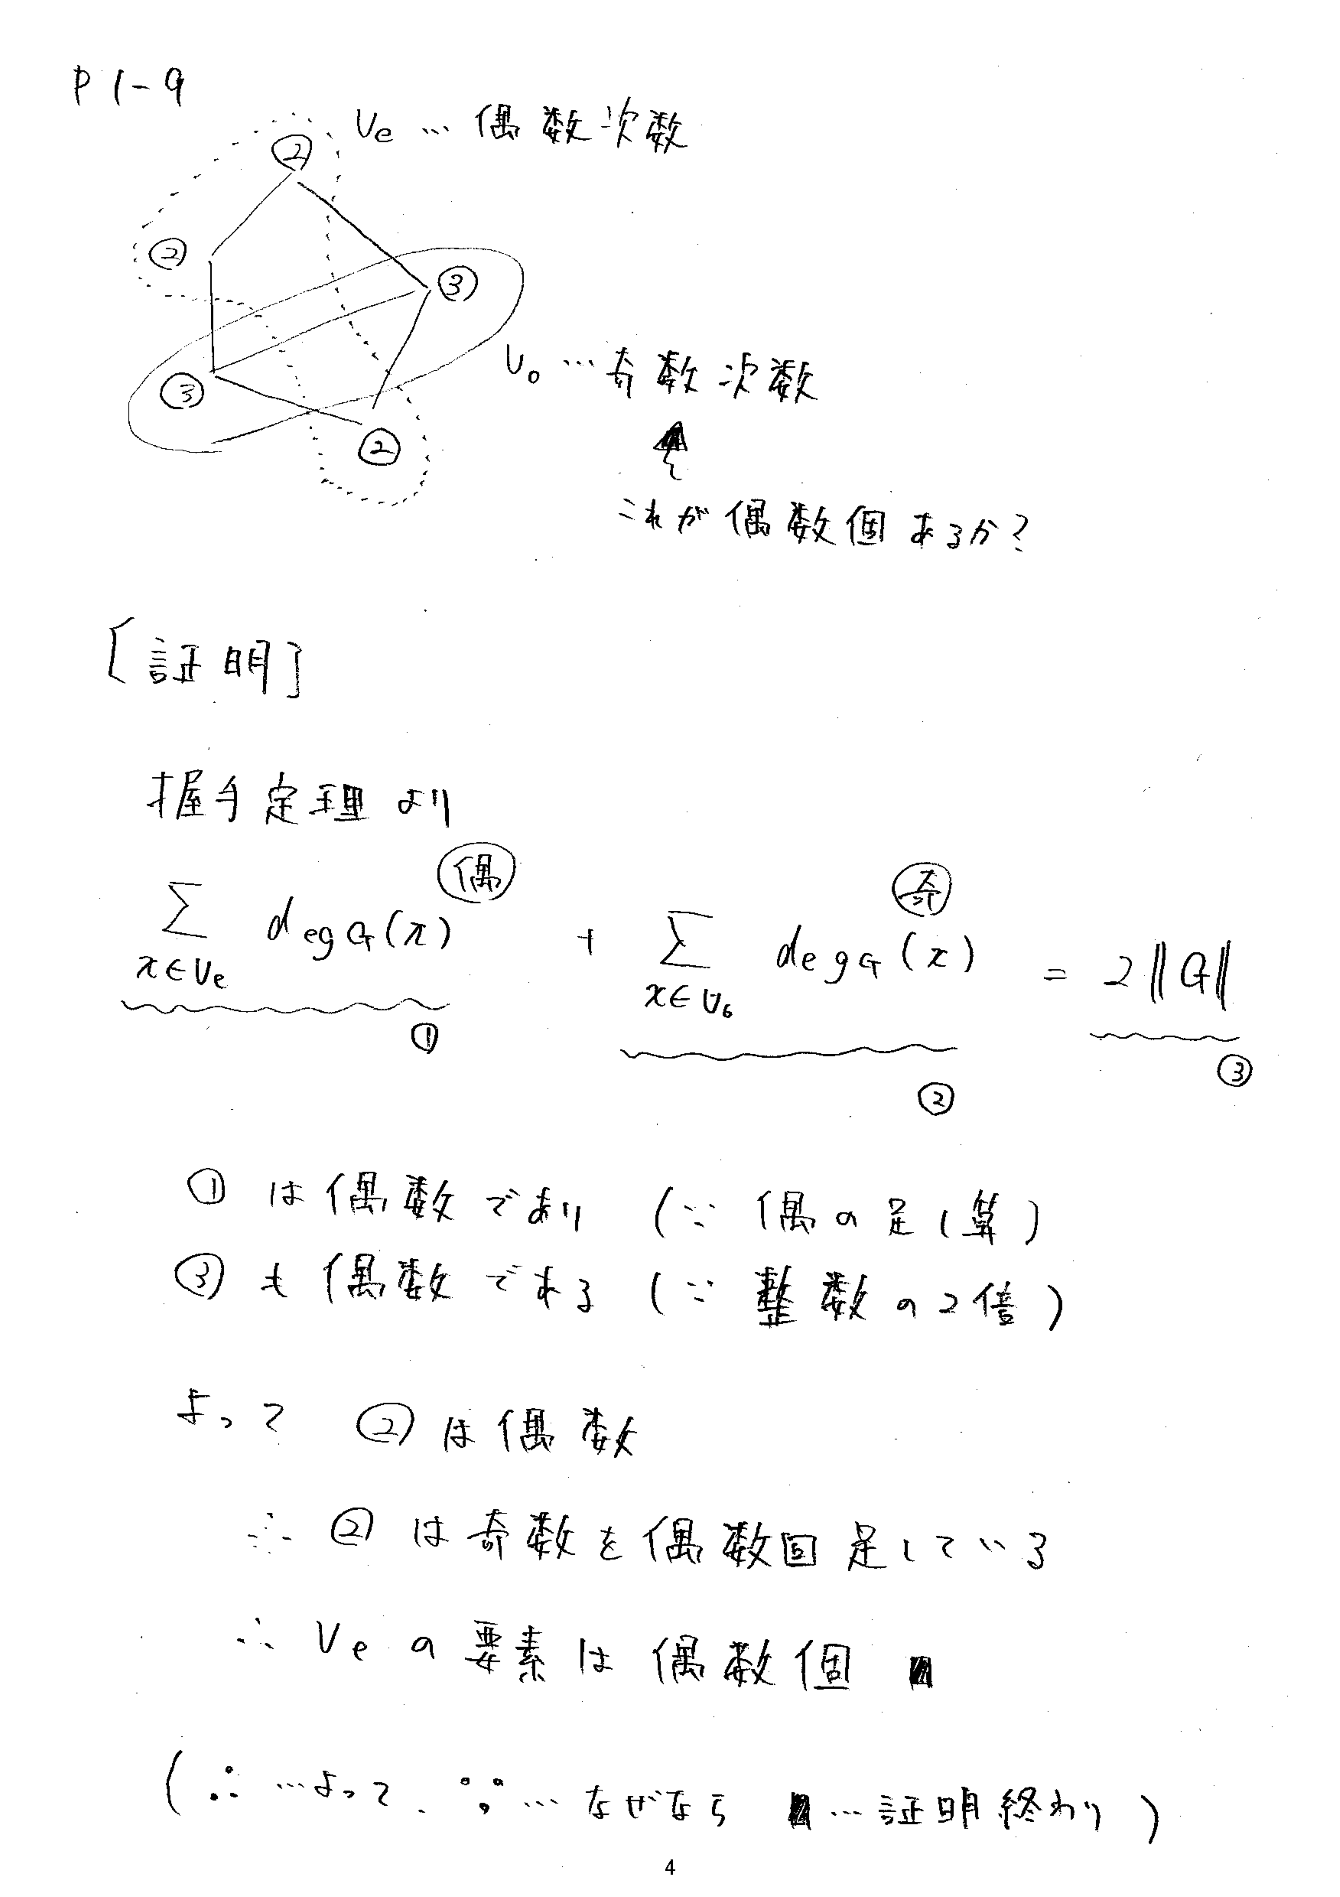 P 1-9
Ve … 偶数次数
②
②
③
Vo … 奇数次数
③
②
これが偶数個あるか?
[証明]
握手定理より
偶 奇
Σ degG(x) + Σ degG(x) = 2‖G‖
x∈Ve x∈Vo
① ② ③
①は偶数であり (∵ 偶の足し算)
③も偶数である (∵ 整数の2倍)
よって ②は偶数
∴ ②は奇数を偶数回足している
∴ Veの要素は偶数個 ■
(∴ …よって、∵ …なぜなら ■ …証明終わり)
4